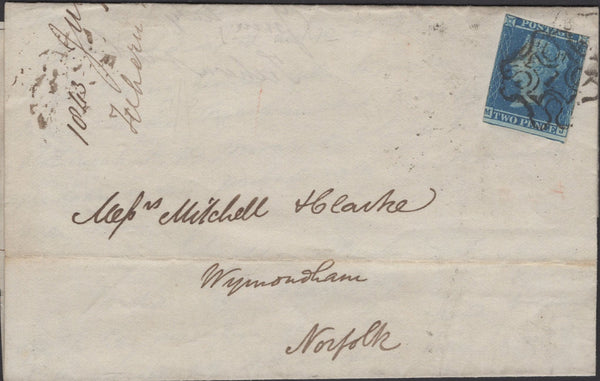 1843
POSTAGE
TWO PENCE
Messrs Mitchell & Clarke
Wymondham
Norfolk